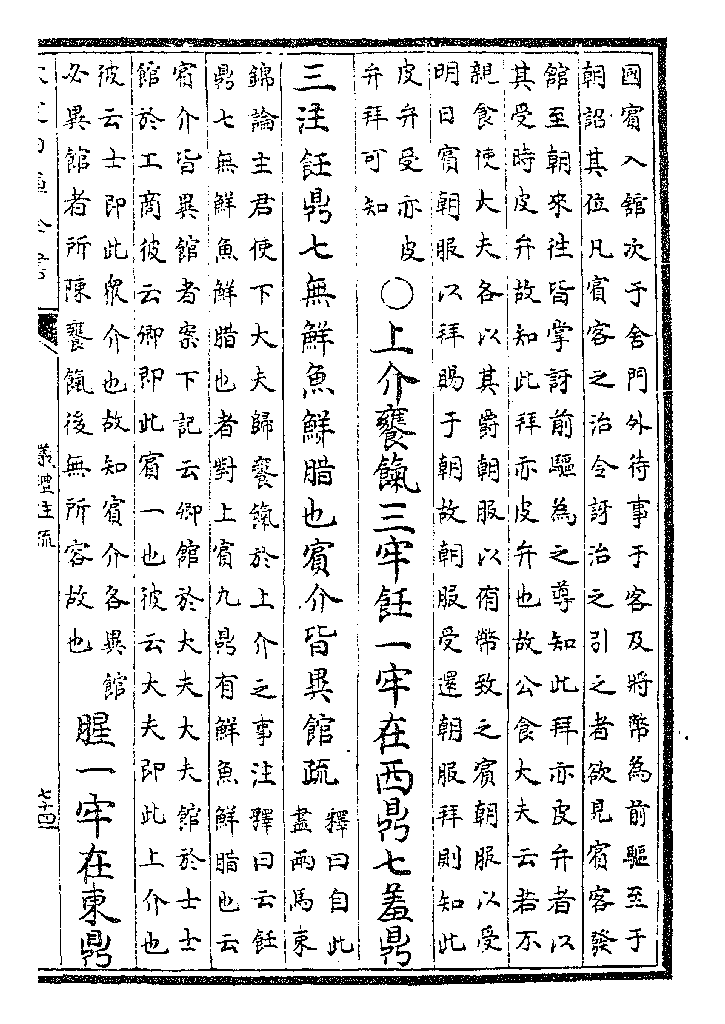 國賓入舘次于舍門外待事于客及將幣為前驅至于
朝詔其位凡賓客之治令訝治之引之者欲見賓客發
館至朝來往皆掌訝前驅為之尊知此拜亦皮弁者以
其受時皮弁故知此拜亦皮弁也故公食大夫云若不
親食使大夫各以其爵朝服以侑幣致之賓朝服以受
明日賓朝服以拜賜于朝故朝服受還朝服拜則知此
皮弁受亦皮
弁拜可知
○上介饔餼三牢飪一牢在西鼎七羞鼎
三注飪鼎七無鮮魚鮮腊也賓介皆異館疏
釋曰自此
盡兩馬束
錦論主君使下大夫歸饔餼於上介之事注釋曰云飪
鼎七無鮮魚鮮腊也者對上賓九鼎有鮮魚鮮腊也云
賓介皆異館者案下記云卿館於大夫大夫館於士士
館於工商彼云卿即此賓一也彼云大夫即此上介也
彼云士即此眾介也故知賓介各異館
必異館者所陳饔餼後無所容故也
腥一牢在東鼎
儀禮注疏
七十四